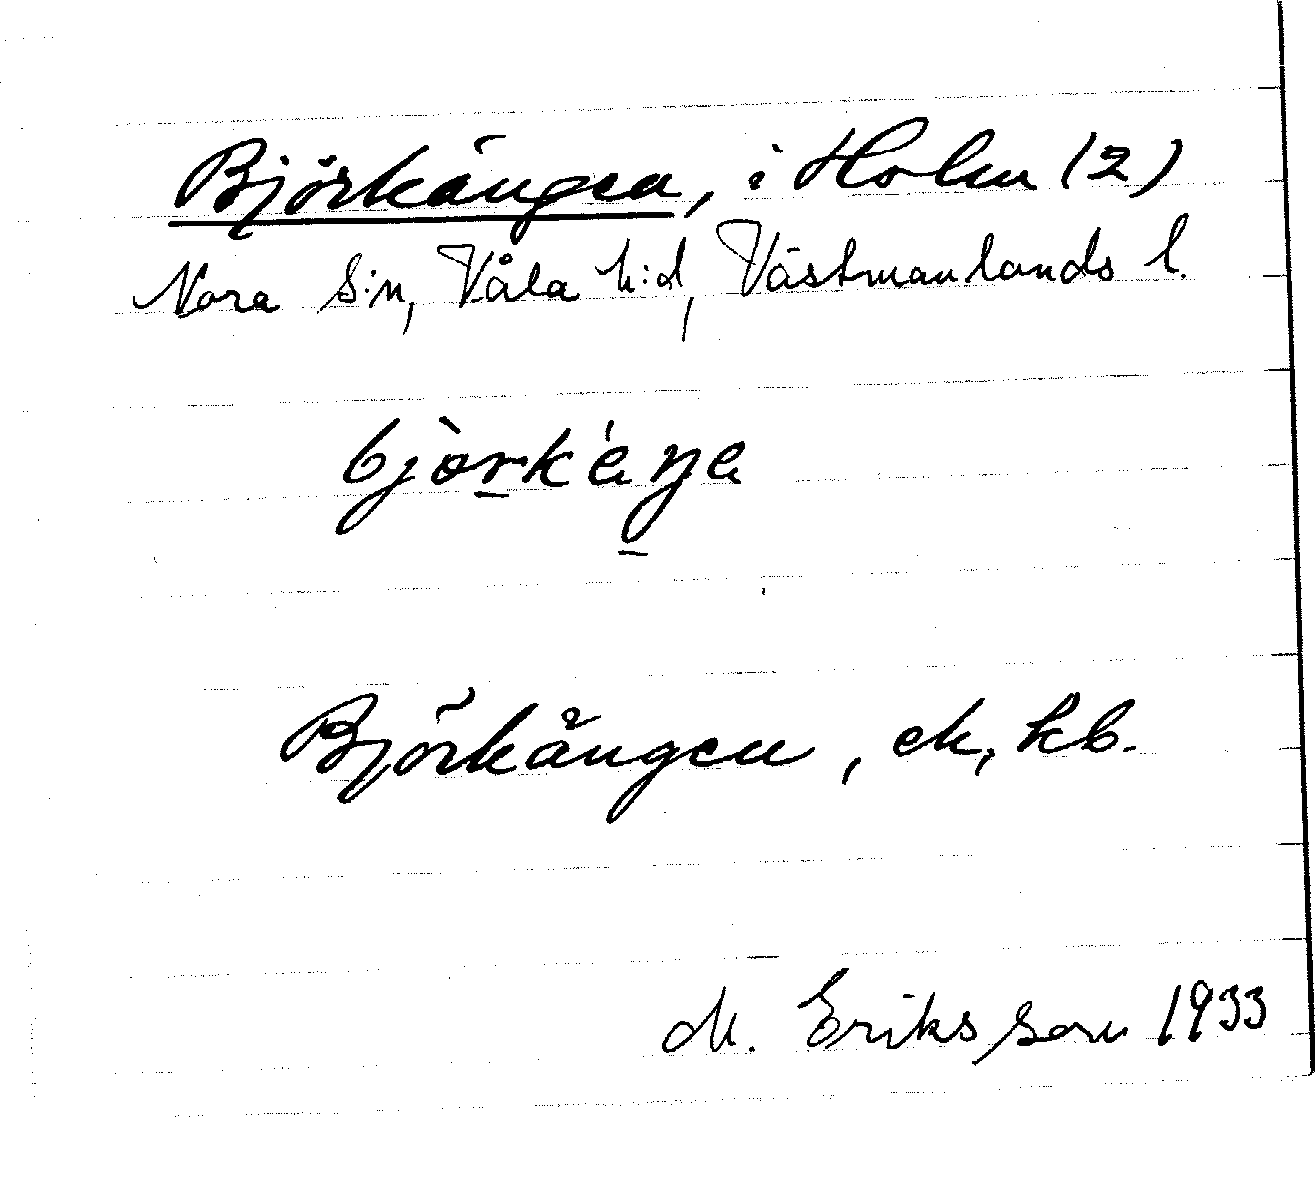 Björkängen, i Holm (2)
Nora s:n, Våla h:d, Västmanlands l.
bjòrkáŋa
Björkängen, ek, kb.
M. Eriksson 1933